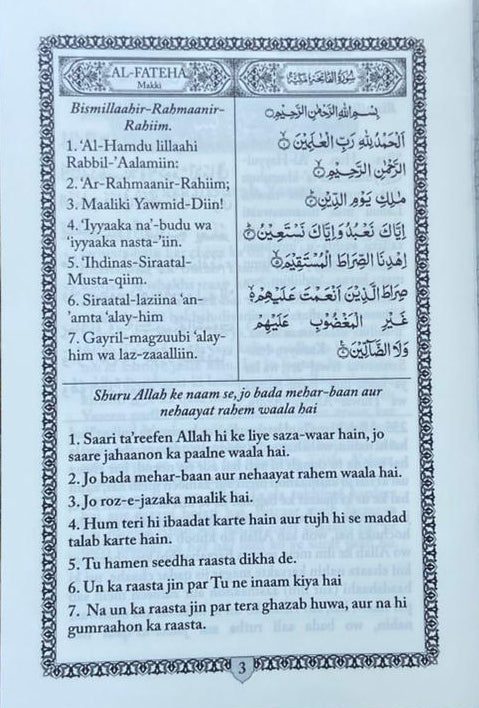 AL-FATEHA
Makki
سُورَةُ الْفَاتِحَةِ مَكِّيَّةٌ
Bismillaahir-Rahmaanir-
Rahiim.
1. ‘Al-Hamdu lillaahi
Rabbil-’Aalamiin:
2. ‘Ar-Rahmaanir-Rahiim;
3. Maaliki Yawmid-Diin!
4. ‘Iyyaaka na’-budu wa
‘iyyaaka nasta-’iin.
5. ‘Ihdinas-Siraatal-
Musta-qiim.
6. Siraatal-laziina ‘an-
’amta ‘alay-him
7. Gayril-magzuubi ‘alay-
him wa laz-zaaalliin.
بِسْمِ اللهِ الرَّحْمٰنِ الرَّحِيْمِ
اَلْحَمْدُ لِلّٰهِ رَبِّ الْعٰلَمِيْنَ ۙ
الرَّحْمٰنِ الرَّحِيْمِ ۙ
مٰلِكِ يَوْمِ الدِّيْنِ ؕ
اِيَّاكَ نَعْبُدُ وَاِيَّاكَ نَسْتَعِيْنُ ؕ
اِهْدِنَا الصِّرَاطَ الْمُسْتَقِيْمَ ۙ
صِرَاطَ الَّذِيْنَ اَنْعَمْتَ عَلَيْهِمْ ۙ
غَيْرِ الْمَغْضُوْبِ عَلَيْهِمْ
وَلَا الضَّآلِّيْنَ
Shuru Allah ke naam se, jo bada mehar-baan aur
nehaayat rahem waala hai
1. Saari ta’reefen Allah hi ke liye saza-waar hain, jo
saare jahaanon ka paalne waala hai.
2. Jo bada mehar-baan aur nehaayat rahem waala hai.
3. Jo roz-e-jazaka maalik hai.
4. Hum teri hi ibaadat karte hain aur tujh hi se madad
talab karte hain.
5. Tu hamen seedha raasta dikha de.
6. Un ka raasta jin par Tu ne inaam kiya hai
7. Na un ka raasta jin par tera ghazab huwa, aur na hi
gumraahon ka raasta.
3